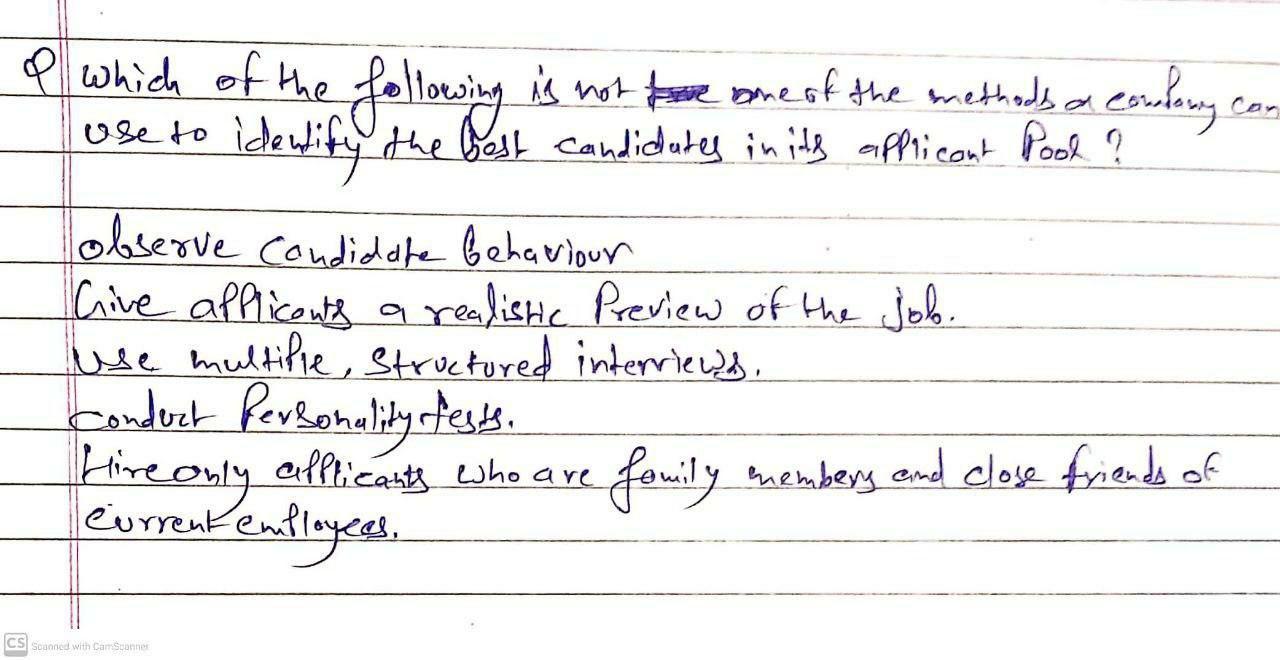 Q which of the following is not one of the methods a company can
use to identify the best candidates in its applicant Pool ?
observe candidate behaviour
Give applicants a realistic Preview of the job.
Use multiple, structured interviews.
Conduct Personality tests.
Hire only applicants who are family members and close friends of
current employees.
CS Scanned with CamScanner